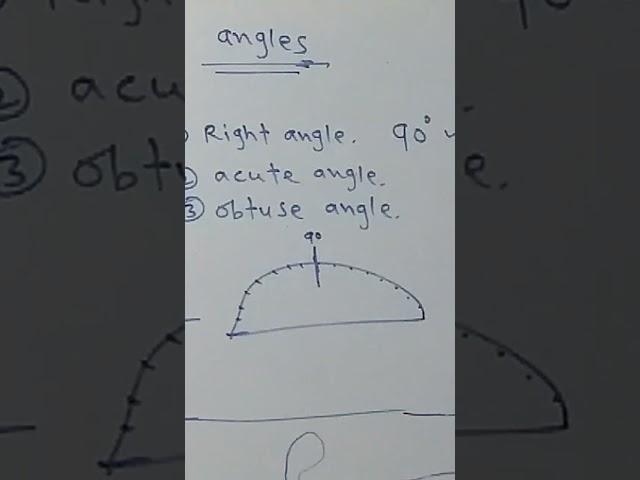 angles
Right angle. 90°
② acute angle.
③ obtuse angle.
90